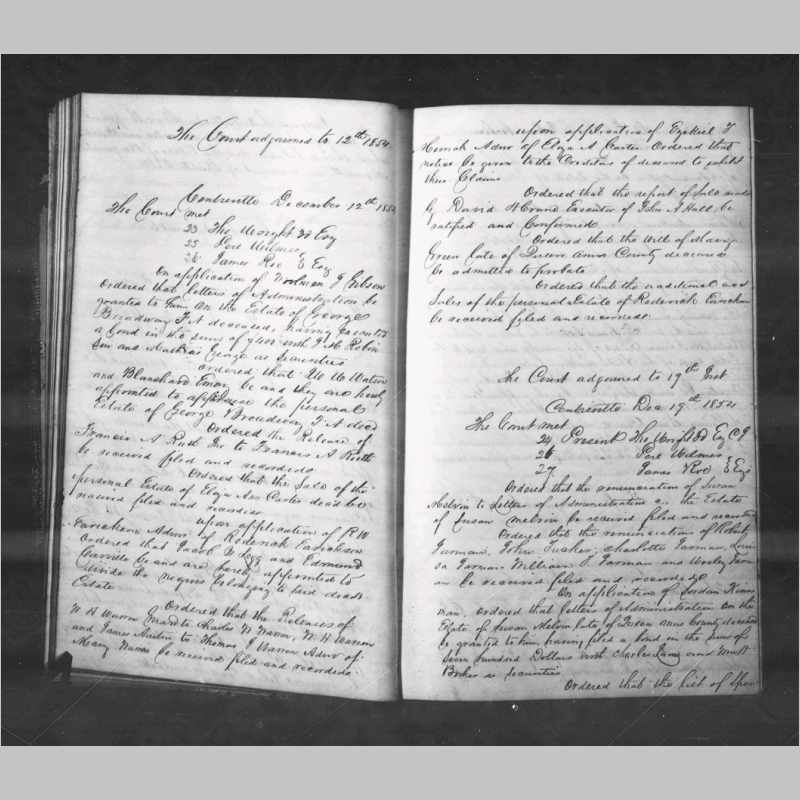 The Court adjourned to 12th 1854
Centreville December 12th 1854
The Court met
23 The
25 Perl Wilmer
26 James Roe & Esq
On application of Woolman J Gibson
Ordered that letters of Administration be
granted to him on the Estate of George
Broadway F A deceased, having
a bond in the sum of with J H Robin
son and George as Securities
Ordered that W W Watson
and Blanchard Emory be and they are hereby
appointed to appraise the personal
Estate of George Broadway F A decd
Ordered the Release of
Francis A Ruth to Francis A Ruth
be received filed and recorded
Ordered that the Sale of the
personal Estate of Eliza Ann Carter decd be
received filed and recorded
Upon application of R W
Admr of Roderick
Ordered that Jacob and Edmund
be and are hereby appointed to
divide the negroes belonging to said decds
Estate
Ordered that the Releases of
W H Warren Charles W Warren, W H Warren
and James to Thomas J Warren Admr of
Mary Warren be received filed and recorded
upon application of Ezekiel T
Admr of Eliza A Carter Ordered that
notice be given to the Creditors of deceased to exhibit
their Claims
Ordered that the report of Sale made
by David H Crane Executor of John A Hall be
ratified and Confirmed
Ordered that the Will of Mary
Green late of Queen Anns County deceased
be admitted to probate
Ordered that the additional
Sales of the personal Estate of Roderick
be received filed and recorded
The Court adjourned to 19th Inst
Centreville Dec 19th 1854
The Court met
24 Present The C J
26 Perl Wilmer
27 James Roe & Esqs
Ordered that the renunciation of Susan
Melvin to Letters of Administration on the Estate
of Susan Melvin be received filed and recorded
Ordered that the renunciations of Robert
Jarman, John Tucker, Charlotte Jarman, Loui
sa Jarman William S Jarman and Jarm
an be received filed and recorded
On application of Jordan
man, Ordered that letters of Administration on the
Estate of Susan Melvin late of Queen Anns County deceased
be granted to him, having filed a bond in the Sum of
Seven hundred Dollars with Charles and
as Securities
Ordered that the list of